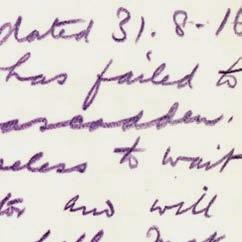 dated 31.8-16
has failed to
ascadden.
eless to wait
tor and will